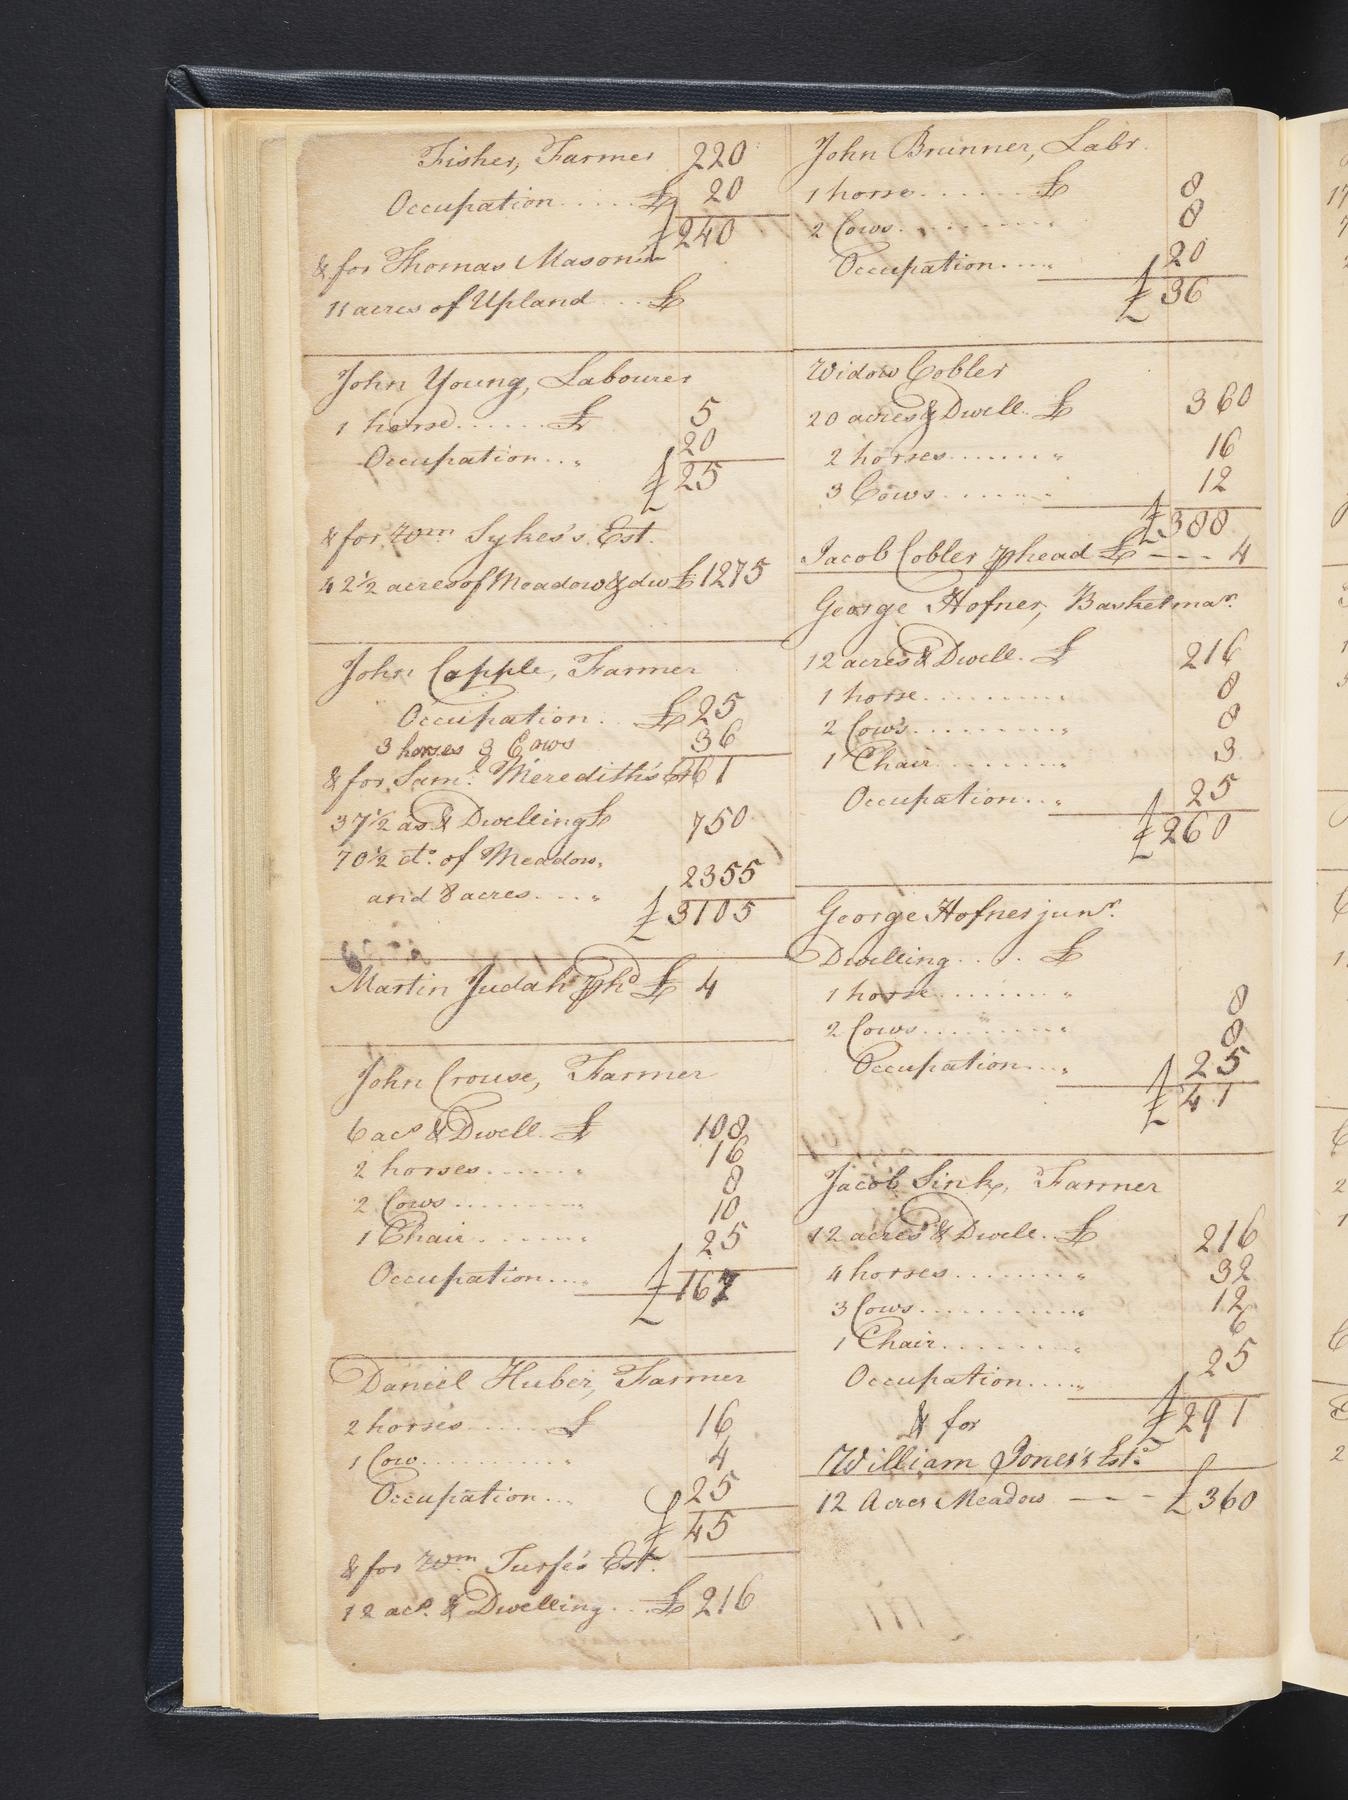 Fisher, Farmer 220
Occupation ..... £ 20
£ 240
& for Thomas Mason's
11 acres of Upland ... £
John Young, Labourer
1 horse ...... £ 5
Occupation .. " 20
£ 25
& for Wm Sykes's Est.
42½ acres of Meadow & dw £ 1275
John Capple, Farmer
Occupation . £ 25
3 horses 3 Cows 36
& for Saml. Meredith's 61
37½ as & Dwelling £ 750
70½ do. of Meadow,
and 8 acres ... " 2355
£ 3105
Martin Judah phd £ 4
John Crouse, Farmer
6 acs & Dwell. £ 108
2 horses ...... " 16
2 Cows ........ " 8
1 Chair ...... " 10
Occupation ... " 25
£ 167
Daniel Huber, Farmer
2 horses ...... £ 16
1 Cow .......... " 4
Occupation ... 25
£ 45
& for Wm. Turse's Est.
12 acs. & Dwelling ... £ 216
John Brunner, Labr.
1 horse ....... £ 8
2 Cows ......... " 8
Occupation .... " 20
£ 36
Widow Cobler
20 acres & Dwell. £ 360
2 horses ....... " 16
3 Cows ....... " 12
£ 388
Jacob Cobler phead £ --- 4
George Hofner, Basketmar.
12 acres & Dwell. £ 216
1 horse .......... " 8
2 Cows .......... " 8
1 Chair ........ " 3
Occupation ... " 25
£ 260
George Hofner junr.
Dwelling .... £
1 horse ........ " 8
2 Cows ......... " 8
Occupation ... " 25
£ 41
Jacob Sink, Farmer
12 acres & Dwell. £ 216
4 horses ........ " 32
3 Cows .......... " 12
1 Chair ........ " 6
Occupation ..... " 25
£ 291
& for
William Jones's Este.
12 Acres Meadow --- £ 360